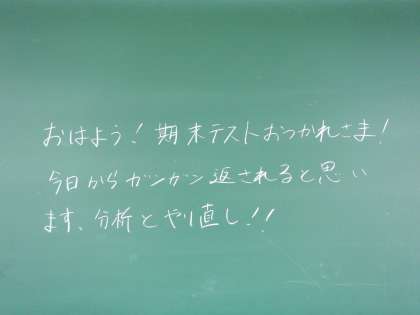 おはよう!期末テストおつかれさま!
今日からガンガン返されると思い
ます、分析とやり直し!!